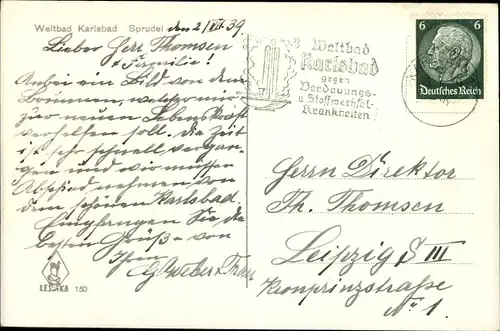 Weltbad Karlsbad Sprudel
den 2/VII. 39
Lieber Herr Thomsen
+ Familie!
Anbei ein Bild von dem
Brunnen, welcher mir
zur neuen Lebenskraft
verhelfen soll. Die Zeit
ist sehr schnell vergan-
gen und wir müssen
Abschied nehmen von
dem schönen Karlsbad.
Empfangen Sie die
besten Grüße von
Ihrem
G. Weber + Frau
LESTKA 150
Weltbad
Karlsbad
gegen
Verdauungs-
u. Stoffwechsel-
Krankheiten
6 6
Deutsches Reich
Herrn Direktor
Th. Thomsen
Leipzig S III
Kronprinzstraße
No 1.